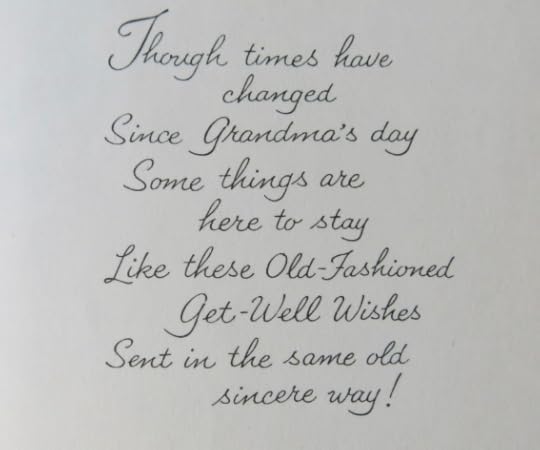 Though times have
changed
Since Grandma's day
Some things are
here to stay
Like these Old-Fashioned
Get-Well Wishes
Sent in the same old
sincere way!